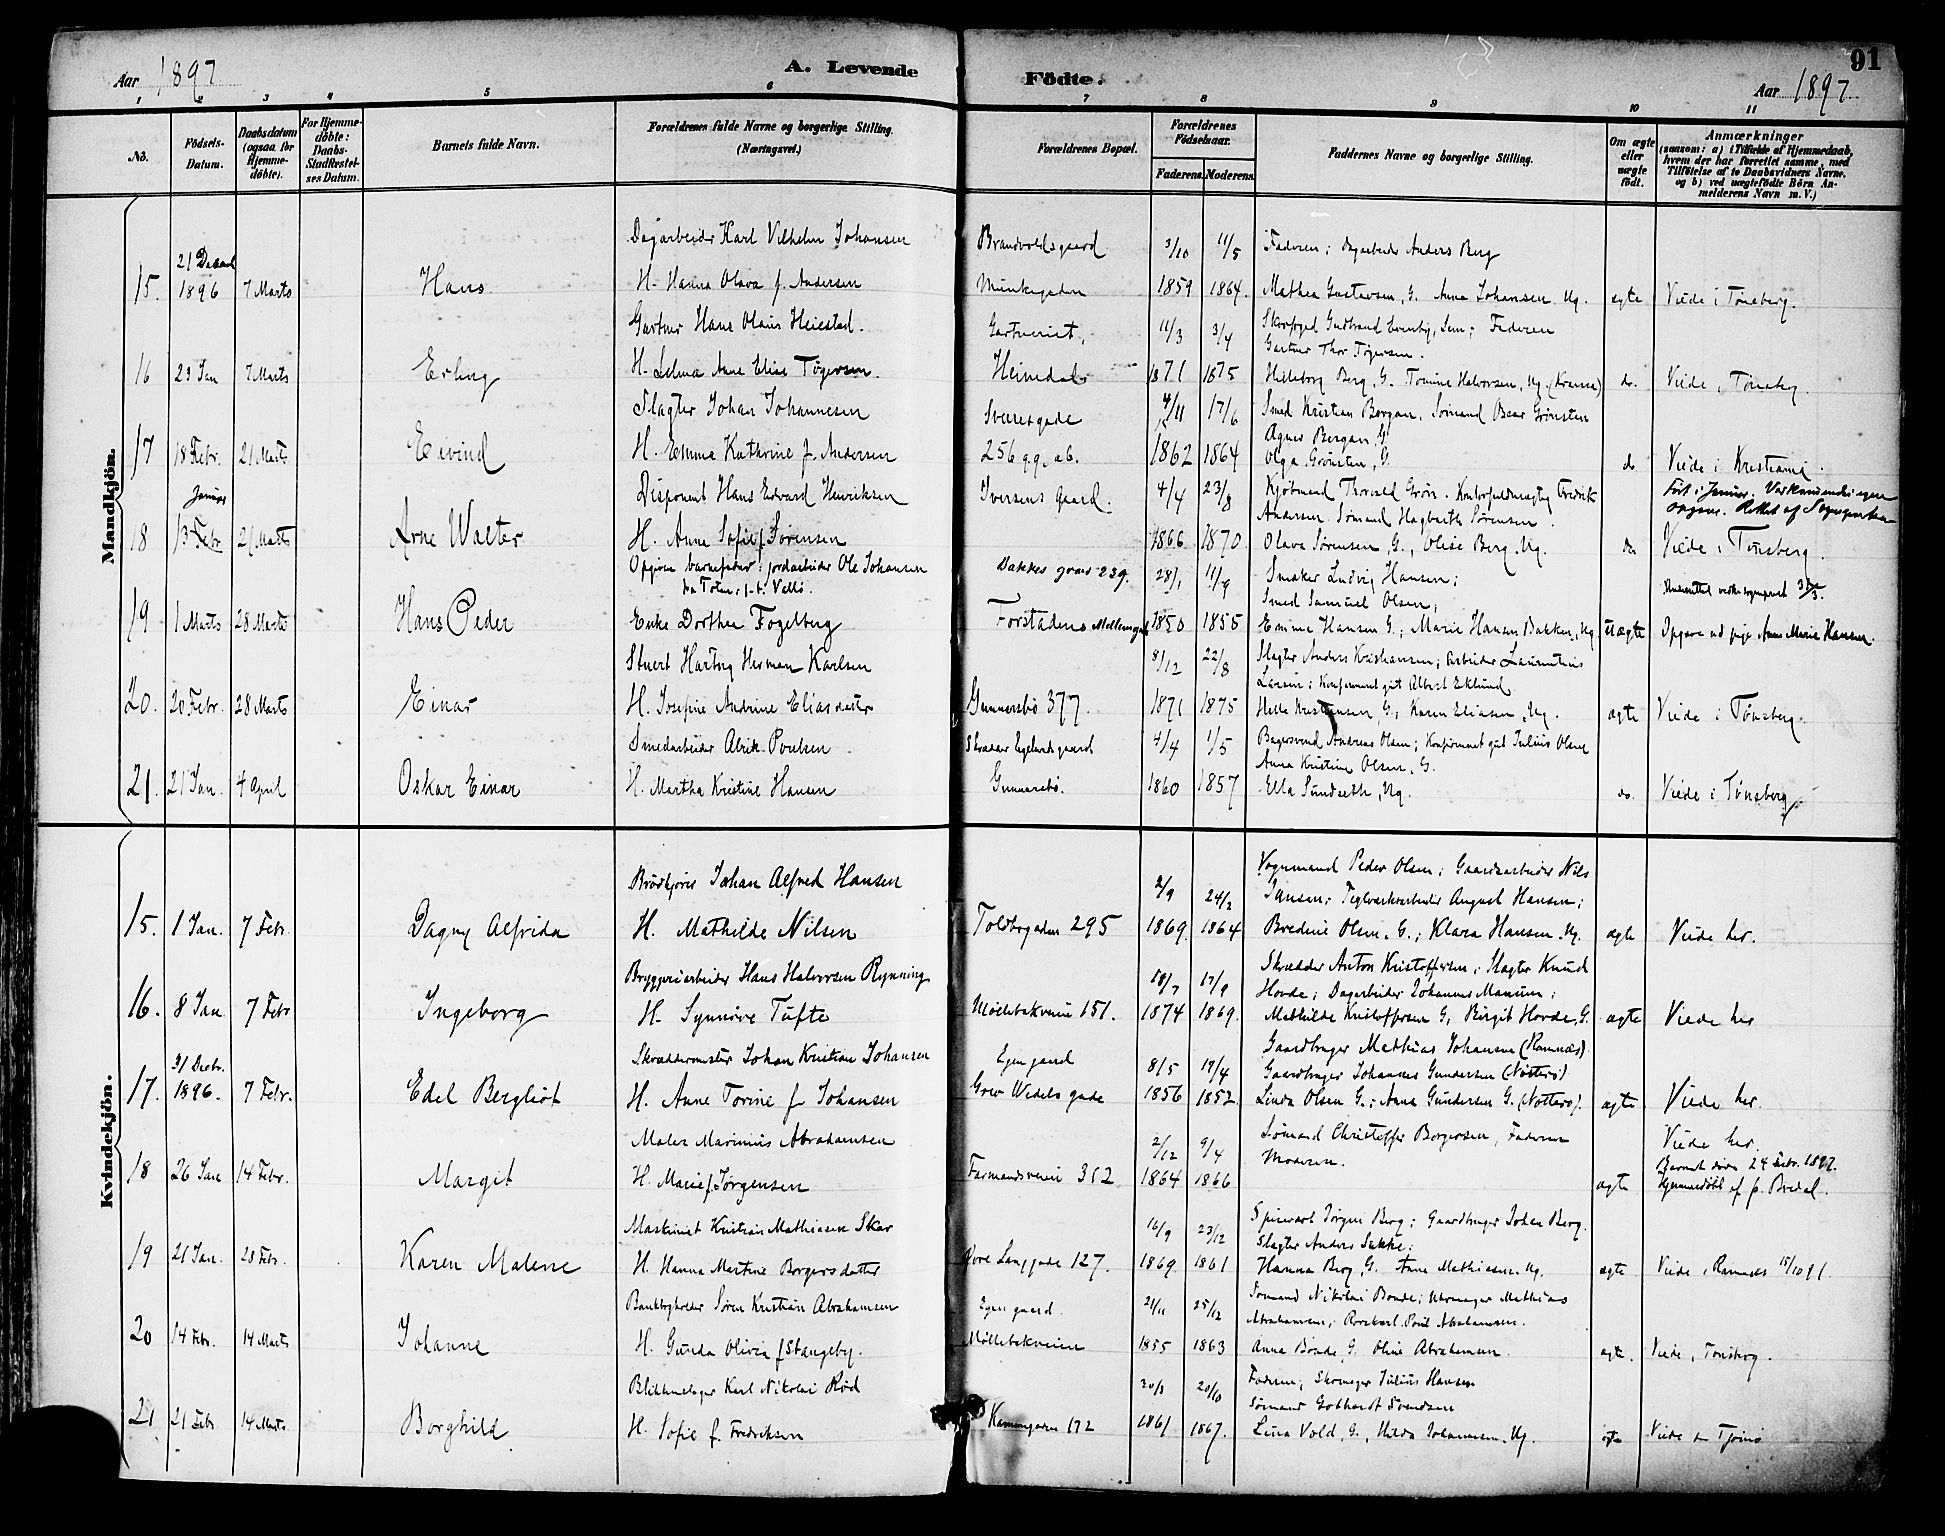 Aar 1897
A. Levende Födte.
91
Aar 1897
1 2 3 4 5 6 7 8 9 10 11
No.
Födsels-Datum.
Daabsdatum (ogsaa for Hjemme-döbte).
For Hjemme-döbte: Daabs-Stadfæstel-ses Datum.
Barnets fulde Navn.
Forældrenes fulde Navne og borgerlige Stilling. (Næringsvei.)
Forældrenes Bopæl.
Forældrenes Födselsaar.
Faderens. Moderens.
Faddernes Navne og borgerlige Stilling.
Om ægte eller uægte födt.
Anmærkninger (saasom: a) i Tilfælde af Hjemmedaab, hvem der har forrettet samme, med Tilföielse af to Daabsvidners Navne, og b) ved uægtefödte Börn An-melderens Navn m. V.)
Mandkjön.
Dagarbeider Karl Vilhelm Johansen Brandvoldsgaard 3/10 11/5 Faderen; dagarbeider Anders Berg
15. 21 Decemb 1896 7 Marts Hans H. Hanna Olava f. Andersen Munkegaden 1859 1864. Mathea Gustavsen, G. Anna Johansen, Ug. ægte Viede i Tönsberg.
Gartner Hans Olaus Heiestad. Gartneriet, 11/3 3/4 Gudbrand Faderen
Gartner Thor Tögersen.
16 23 Jan 7 Marts Erling H. Selma Anne Elise Tögersen. Heimdal 1871 1875 Berg, G. Tomine Halvorsen, Ug. do. Viede i Tönsberg
Slagter Johan Johannesen Sverresgade 4/11 17/6 Smed Kristian Bergan. Sömand Oscar Grönsten
Agnes Bergan, G.
17 18 Febr. 21 Marts Eivind H. Emma Kathrine f. Andersen 256 1862 1864 Olga Grönsten, G. do Viede i Kristiania.
Januar Disponent Hans Edvard Henriksen Iversens Gaard. 4/4 23/8 Kjöbmand Thorvald Grön. Kontorfuldmægtig Fredrik Föd i Januar.
Andersen. Sömand Hagbarth Sörensen.
18 13 Febr 21 Marts Arne Walter H. Anne Sofie f. Sörensen 1866 1870. Olava Sörensen, G., Olise Berg. Ug. do Viede i Tönsberg.
Opgiven barnefader: jordarbeider Ole Johansen Bakkes gaard 239. 28/1 11/9 Ludvig Hansen;
fra Toten, p.t. Vallö. Smed Samuel Olsen;
19 1 Marts 28 Marts Hans Peder Enke Dorthea Fogelberg Forstadens 1850 1855 Emma Hansen G.; Marie Hansen Bakken, Ug. uægte Opgave ved pige Anne Marie Hansen.
Stuert Hartvig Herman Karlsen 8/12 22/8 Slagter Anders Kristiansen; Arbeider Laurentius
Larsen; Konfirmeret gut Albert Eklund.
20. 20 Febr. 28 Marts Einar H. Josefine Andrine Eliasdatter Gunnersbö 377. 1871 1875 Kristiansen, G.; Karen Eliasen, Ug. ægte Viede i Tönsberg.
Smedarbeider Alrik Poulsen. 4/4 1/5 Bagersvend Andreas Olsen; Konfirmeret gut Julius Olsen
Anna Kristine Olsen, G.
21. 21 Jan. 4 April Oskar Einar H. Martha Kristine Hansen Gunnarsbö. 1860 1857 Ella Sundseth, Ug. do. Viede i Tönsberg
Kvindekjön.
Brödkjörer Johan Alfred Hansen 2/9 24/2 Vognmand Peder Olsen; Gaardsarbeider Nils
Jansen; Teglverksarbeider August Hansen;
15. 1 Jan. 7 Febr. Dagny Alfrida H. Mathilde Nilsen Toldbogaden 295 1869. 1864 Bredine Olsen. G.; Klara Hansen. Ug. ægte Viede her.
Bryggeriarbeider Hans Halvorsen Rynning 10/7 17/9 Skrædder Anton Kristoffersen; Slagter Knud
Hovde; Dagarbeider Johannes
16. 8 Jan. 7 Febr Ingeborg H. Synnöve Tufte Möllebakveien 151. 1874 1869. Mathilde Kristoffersen G, Birgit Hovde, G. ægte Viede her
Skræddermester Johan Kristian Johansen Egen gaard 8/5 19/4 Gaardbruger Mathias Johansen (Ramnæs).
Gaardbruger Johannes Gundersen (Nötterö).
17. 31 Decbr. 1896. 7 Febr. Edel Bergliot H. Anne Torine f Johansen Grev Wedels gade 1856 1852. Linda Olsen G.; Anna Gundersen G. (Nötterö). ægte Viede her.
Maler Marinius Abrahamsen 2/12 9/4 Sömand Christoffer Borgersen, Faderen Viede her.
Moderen. Barnet döde 24 Febr. 1897.
18 26 Jan 14 Febr. Margit H. Marie f. Jörgensen Farmandsveien 312 1864 1866 ægte Hjemmedöbt af p. Bredal.
Maskinist Kristian Mathiasen Skar 16/9 23/12 Jörgen Berg; Gaardbruger Johan Berg.
Slagter Anders Sukke;
19 21 Jan. 28 Febr. Karen Malene H. Hanna Martine Borgersdatter Övre Langgade 127. 1869 1861 Hanna Berg, G. Anne Mathiasen. Ug. ægte Viede i Ramnæs 15/10 91.
Bankbogholder Sören Kristian Abrahamsen Egen gaard. 21/11 25/12 Sömand Nikolai Bonde; Mathias
Abrahamsen; Poul Abrahamsen.
20 14 Febr. 14 Marts Johanne H. Gunda Olivia f Stangeby. Möllebakveien 1855 1863 Anna Bonde, G. Oline Abrahamsen. ægte. Viede i Tönsberg.
Blikkenslager Karl Nikolai Röd 20/3 20/10 Faderen; Skomager Julius Hansen
Sömand Gotthardt Svendsen
21 21 Febr. 14 Marts Borghild H. Sofie f. Fredriksen 172 1861 1867. Lina Vold, G., Hilda Johannesen. Ug. ægte Viede Tjömö